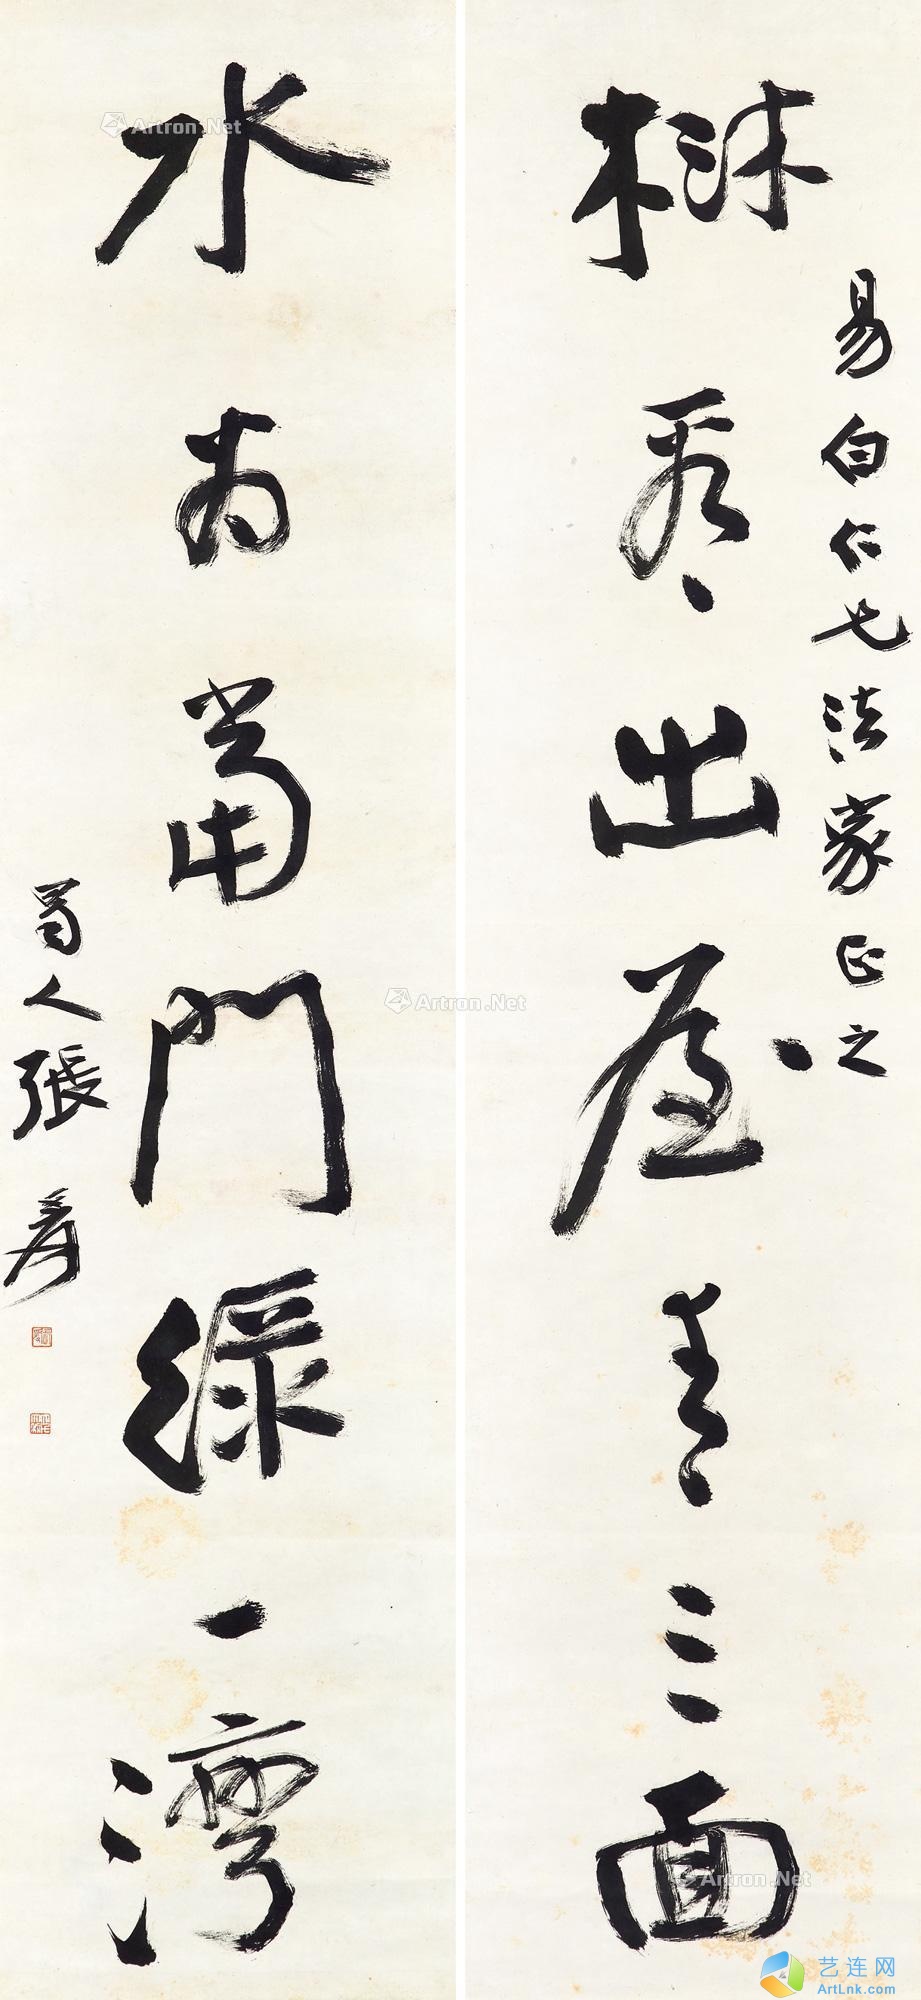 樹看出屋青三面
易白仁兄法家正之
水為當門綠一灣
蜀人張爰
Artron.Net
Artron.Net
Artron.Net
艺连网
ArtLnk.com